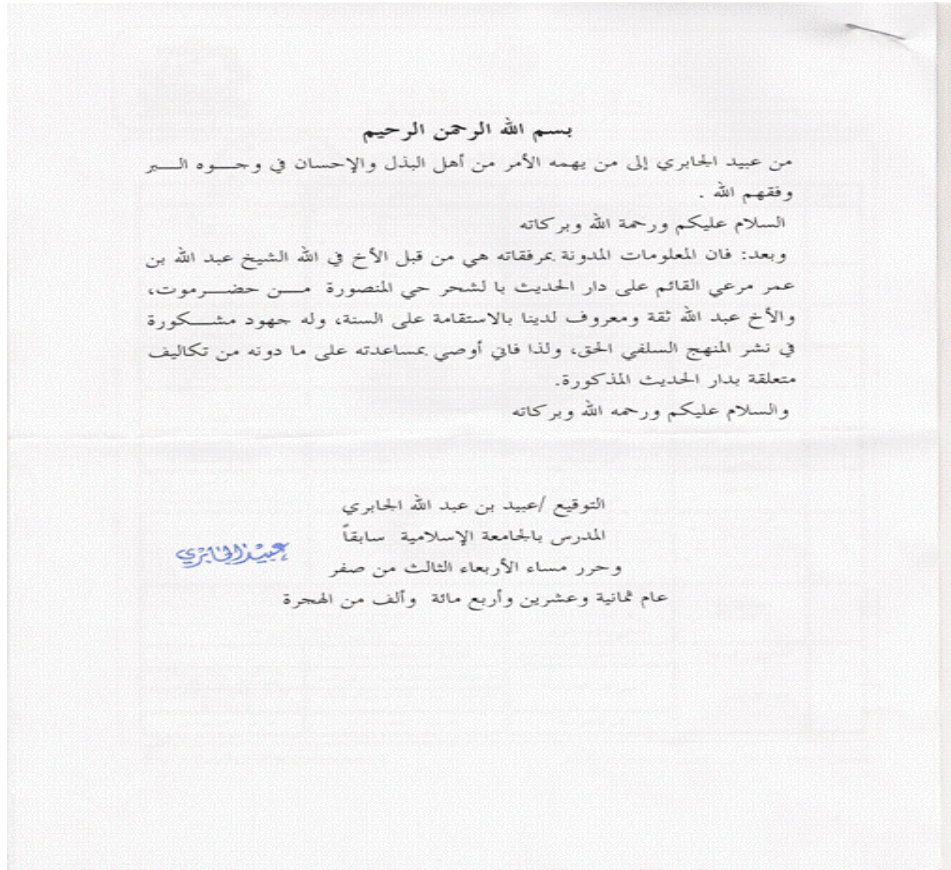 بسم الله الرحمن الرحيم
من عبيد الجابري إلى من يهمه الأمر من أهل البذل والإحسان في وجوه البر
وفقهم الله .
السلام عليكم ورحمة الله وبركاته
وبعد: فان المعلومات المدونة بمرفقاته هي من قبل الأخ في الله الشيخ عبد الله بن
عمر مرعي القائم على دار الحديث با لشحر حي المنصورة من حضرموت،
والأخ عبد الله ثقة ومعروف لدينا بالاستقامة على السنة، وله جهود مشكورة
في نشر المنهج السلفي الحق، ولذا فاني أوصي بمساعدته على ما دونه من تكاليف
متعلقة بدار الحديث المذكورة.
والسلام عليكم ورحمه الله وبركاته
التوقيع /عبيد بن عبد الله الجابري
المدرس بالجامعة الإسلامية سابقاً
عبيد الجابري
وحرر مساء الأربعاء الثالث من صفر
عام ثمانية وعشرين وأربع مائة وألف من الهجرة